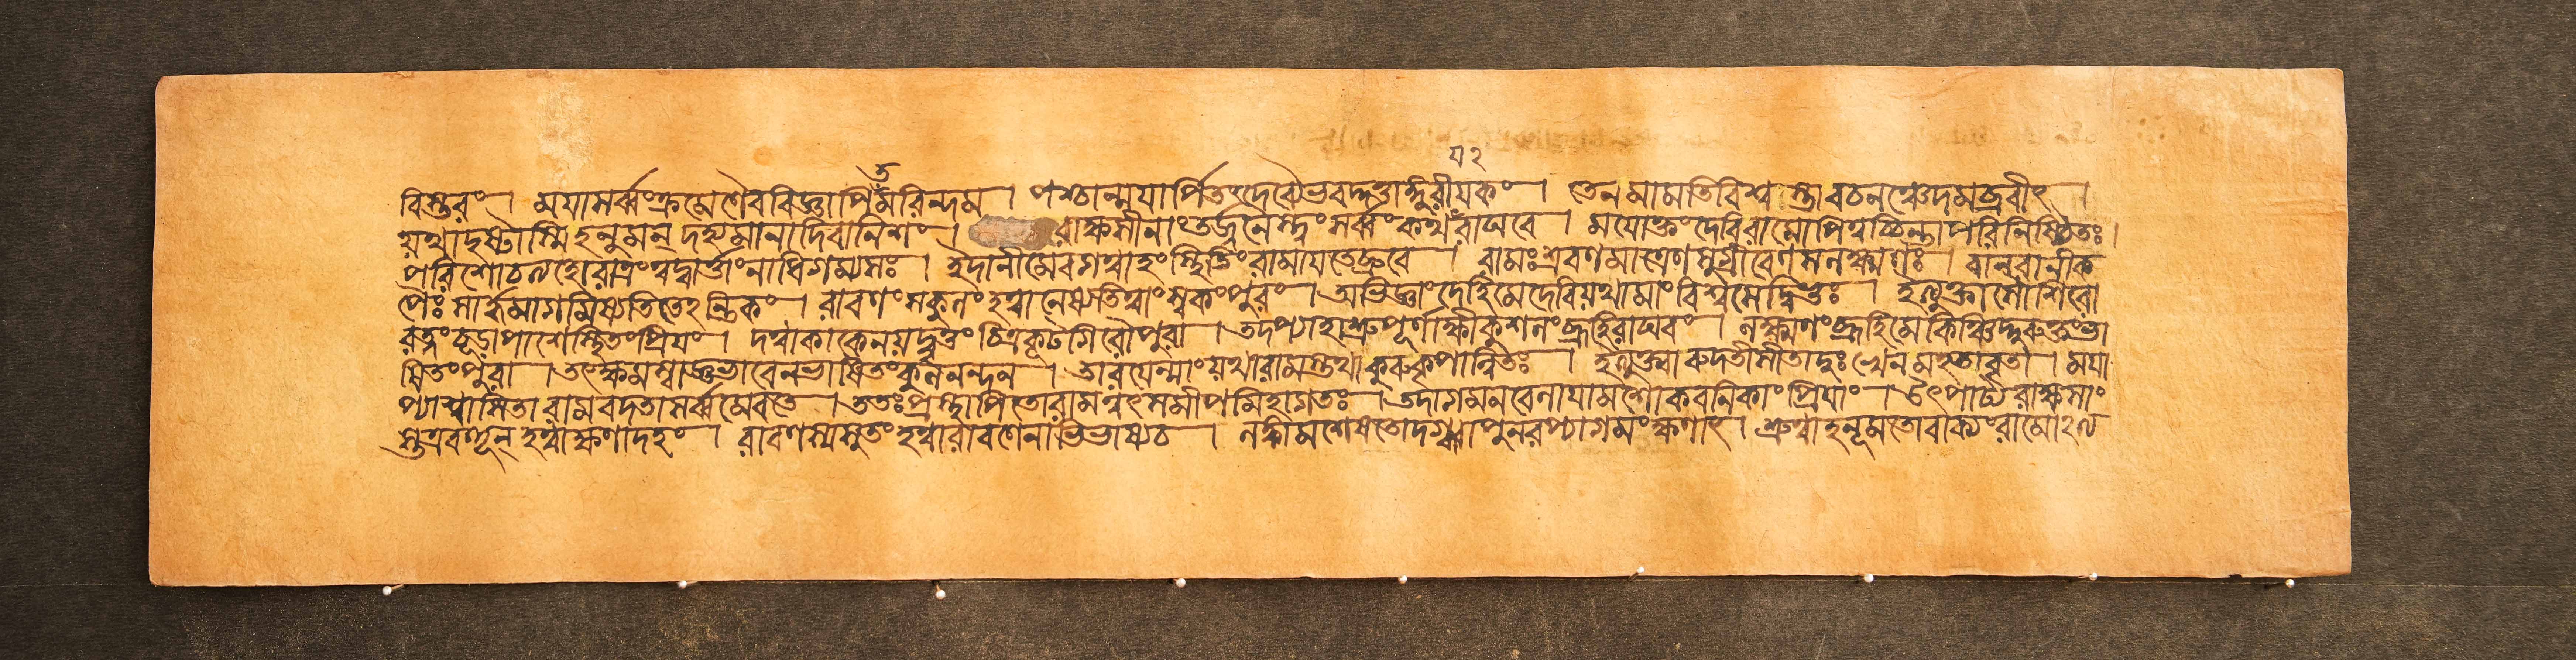 বিস্তরং । ময়া সর্ব্বং ক্রমেণৈব বিজ্ঞাপিতমরিন্দম । পশ্চান্ময়ার্পিতং দেব্যৈ ভবদ্দত্তাঙ্গুরীয়কং । তেন মামতিবিশ্বস্তা বচনঞ্চেদমব্রবীৎ ।
যথা দৃষ্টাস্মি হনুমন্ দহ্যমানা দিবানিশং । রাক্ষসীনাং তর্জ্জনৈস্ত্বং সর্ব্বং কথয় রাঘবে । ময়োক্তং দেবি রামোপি ত্বচ্চিন্তাপরিনিষ্ঠিতঃ ।
পরিশোচত্যহোরাত্রং ত্বদ্বার্ত্তাং নাধিগম্য সঃ । ইদানীমেব গত্বাহং স্থিতিং রামায় তে ব্রুবে । রামঃ শ্রবণমাত্রেণ সুগ্রীবেণ সলক্ষ্মণঃ । বানরানীক
পৈঃ সার্দ্ধমাগমিষ্যতি তেঽন্তিকং । রাবণং সকুলং হত্বা নেষ্যতি ত্বাং স্বকং পুরং । অভিজ্ঞাং দেহি মে দেবি যথা মাং বিশ্বসেদ্বিভুঃ । ইত্যুক্তা সা শিরো
রত্নং চূড়াপাশে স্থিতং প্রিয়ং । দত্বা কাকেন যদ্বৃত্তং চিত্রকূটগিরৌ পুরা । তদপ্যাহাশ্রুপূর্ণাক্ষী কুশলং ব্রূহি রাঘবং । লক্ষ্মণং ব্রূহি মে কিঞ্চিদ্দুরুক্তং ভা
ষিতং পুরা । তৎক্ষমস্বাজ্ঞভাবেন ভাষিতং কুলনন্দন । তারয়েন্মাং যথা রামস্তথা কুরু কৃপান্বিতঃ । ইত্যুক্ত্বা রুদতী সীতা দুঃখেন মহতাবৃতা । ময়া
প্যাশ্বাসিতা রাম বদতা সর্ব্বমেব তে । ততঃ প্রস্থাপিতো রাম ত্বৎসমীপমিহাগতঃ । তদাগমনবেলায়ামশোকবনিকাং প্রিয়াং । উৎপাট্য রাক্ষসাং
স্তত্র বহূন্ হত্বা ক্ষণাদহং । রাবণস্য সুতং হত্বা রাবণেনাভিভাষ্য চ । লঙ্কামশেষতো দগ্ধ্বা পুনরপ্যাগমং ক্ষণাৎ । শ্রুত্বা হনূমতো বাক্যং রামোঽত্য